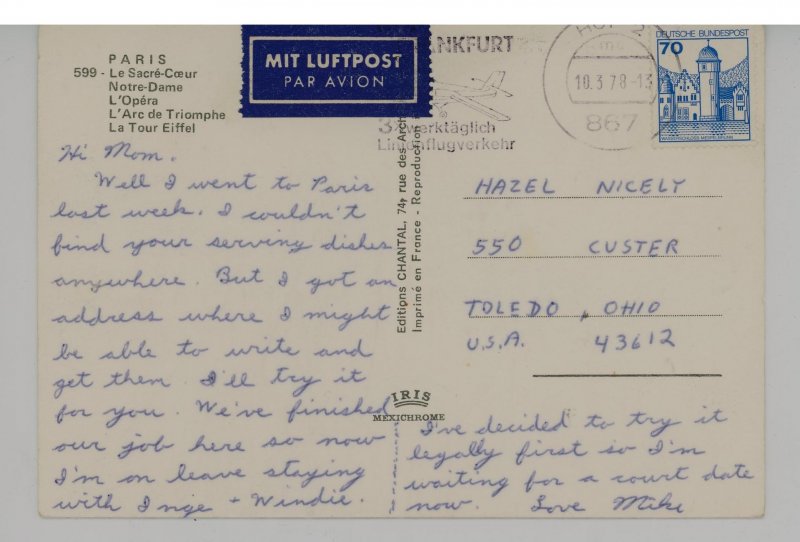 PARIS
599 - Le Sacré-Cœur
Notre-Dame
L'Opéra
L'Arc de Triomphe
La Tour Eiffel
MIT LUFTPOST
PAR AVION
ANKFURT
3x werktäglich
Linienflugverkehr
HOF 2
mc
10.3.78-13
867
DEUTSCHE BUNDESPOST
70
Hi Mom.
Well I went to Paris
last week. I couldn't
find your serving dishes
anywhere. But I got an
address where I might
be able to write and
get them. I'll try it
for you. We've finished
our job here so now
I'm on leave staying
with Inge + Windie.
Editions CHANTAL, 74, rue des Arch
Imprimé en France - Reproduction
IRIS
MEXICHROME
HAZEL NICELY
550 CUSTER
TOLEDO, OHIO
U.S.A. 43612
I've decided to try it
legally first so I'm
waiting for a court date
now. Love Mike